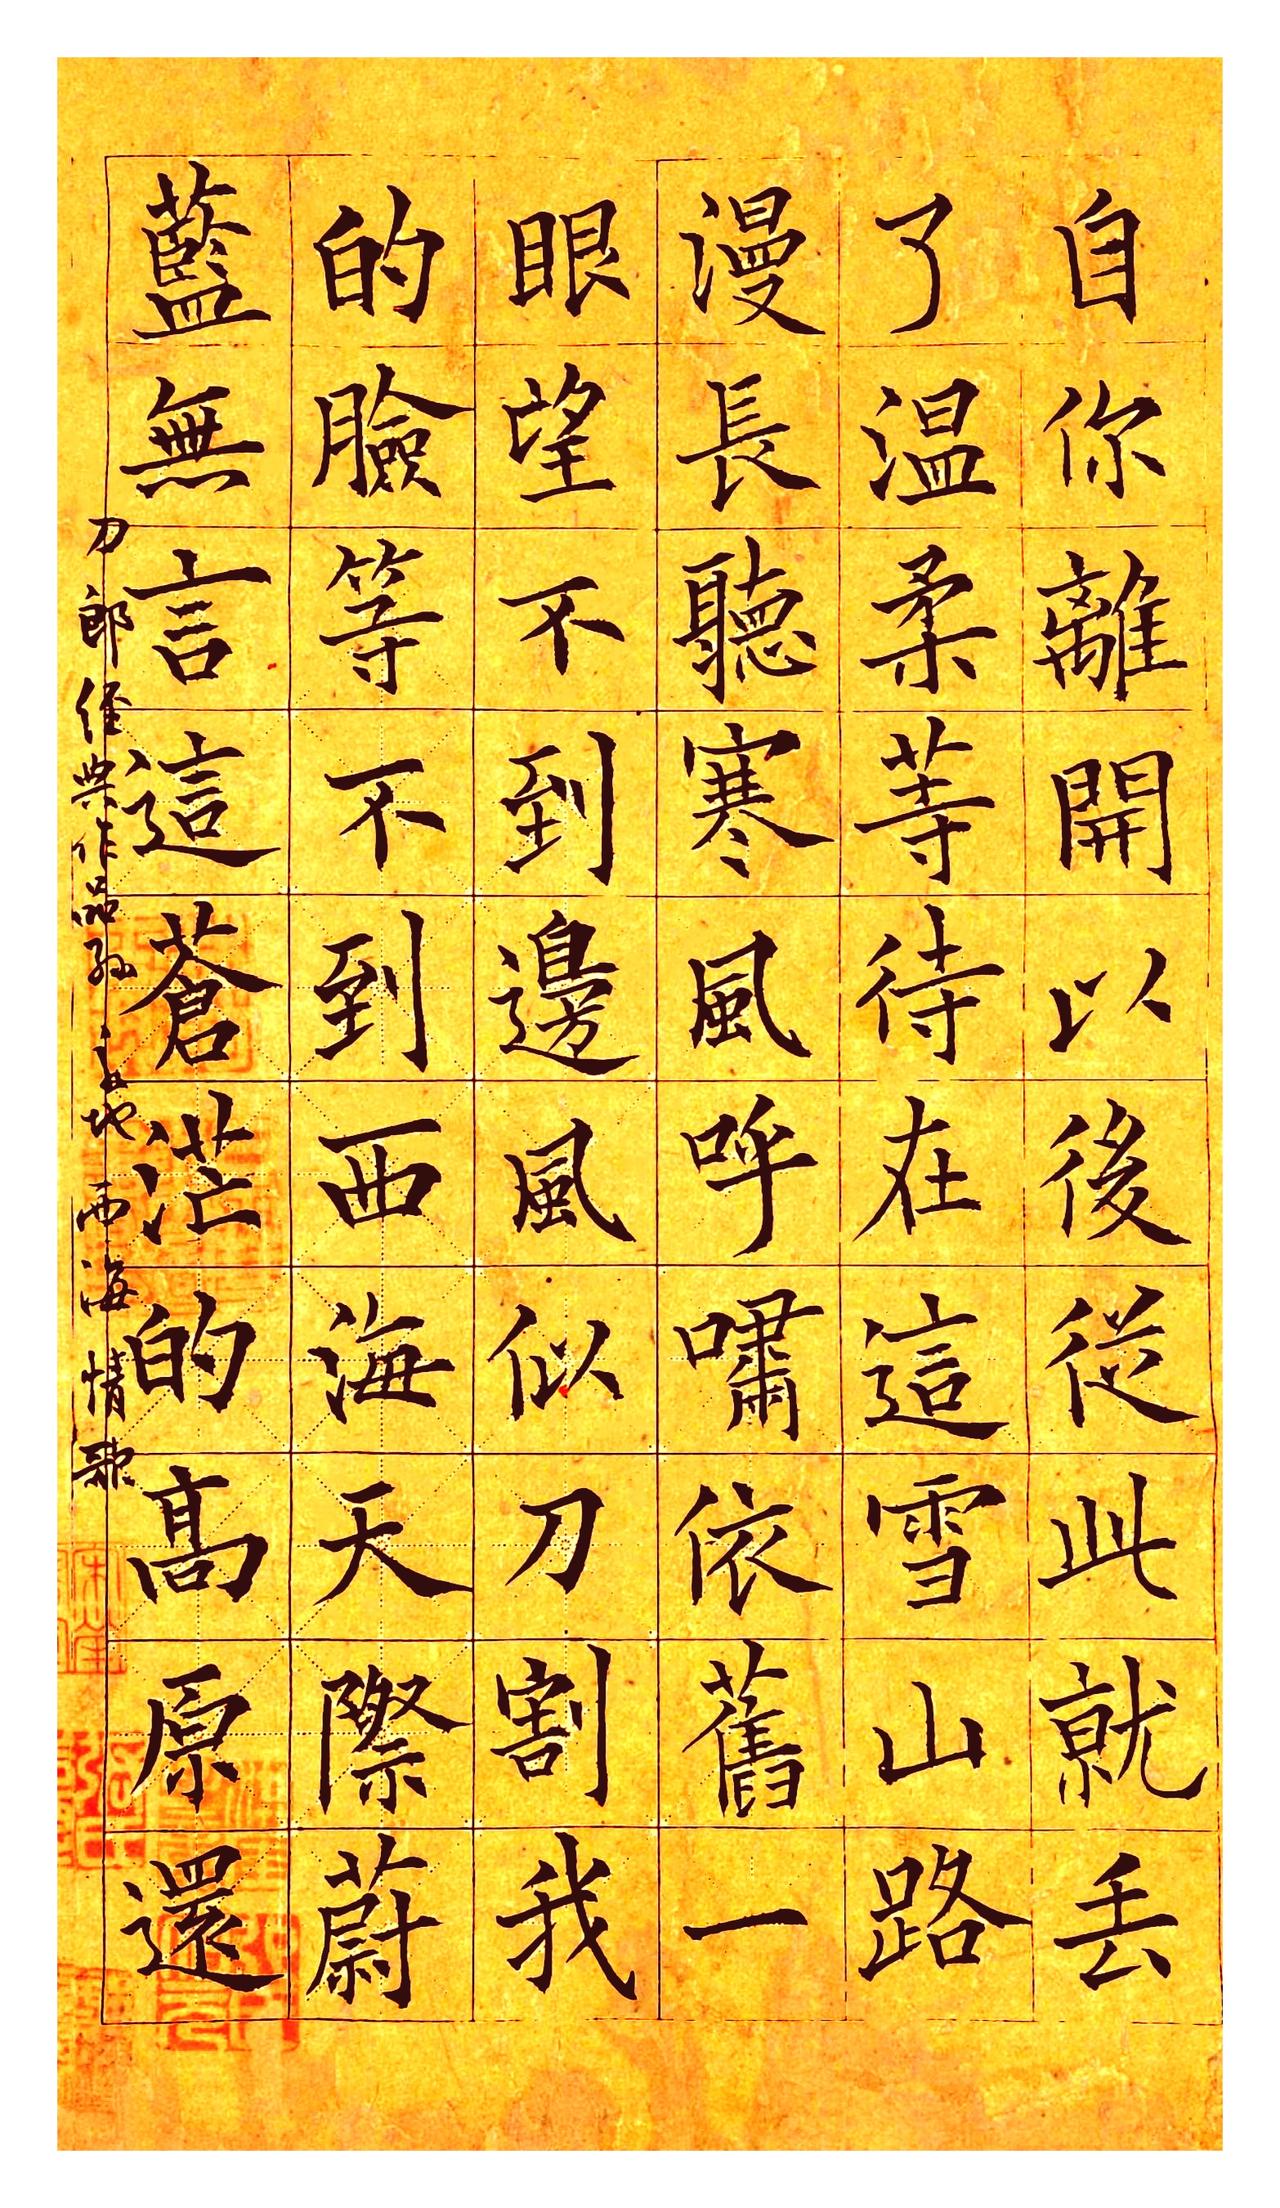 自你離開以後從此就丢
了温柔等待在這雪山路
漫長聽寒風呼嘯依舊一
眼望不到邊風似刀割我
的臉等不到西海天際蔚
藍無言這蒼茫的高原還
刀郎經典作品西海情歌